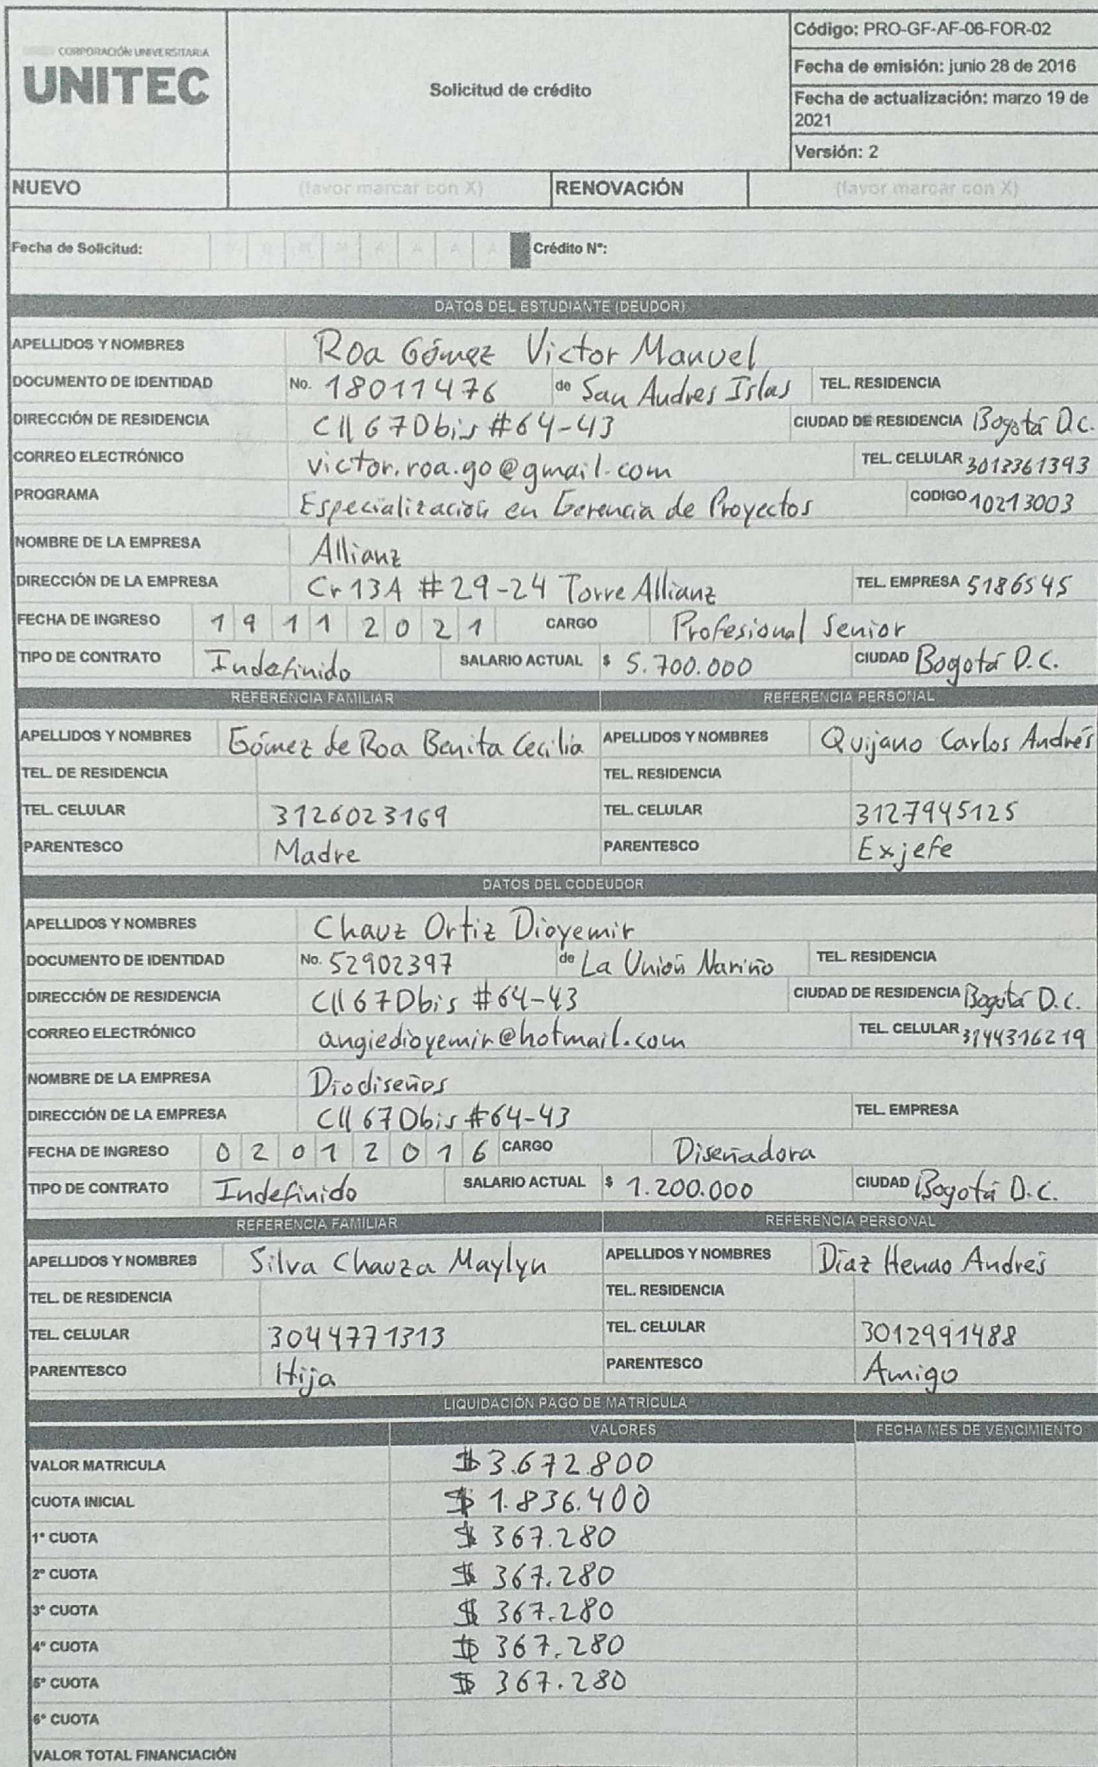 CORPORACIÓN UNIVERSITARIA
UNITEC
Solicitud de crédito
Código: PRO-GF-AF-06-FOR-02
Fecha de emisión: junio 28 de 2016
Fecha de actualización: marzo 19 de 2021
Versión: 2
NUEVO (favor marcar con X) RENOVACIÓN (favor marcar con X)
Fecha de Solicitud: Crédito N°:
DATOS DEL ESTUDIANTE (DEUDOR)
APELLIDOS Y NOMBRES Roa Gómez Victor Manuel
DOCUMENTO DE IDENTIDAD No. 18011476 de San Andres Islas TEL. RESIDENCIA
DIRECCIÓN DE RESIDENCIA Cll 67D bis #64-43 CIUDAD DE RESIDENCIA Bogotá D.C.
CORREO ELECTRÓNICO victor.roa.go@gmail.com TEL. CELULAR 3012361393
PROGRAMA Especialización en Gerencia de Proyectos CODIGO 10213003
NOMBRE DE LA EMPRESA Allianz
DIRECCIÓN DE LA EMPRESA Cr 13A #29-24 Torre Allianz TEL. EMPRESA 5186545
FECHA DE INGRESO 1 9 1 1 2 0 2 1 CARGO Profesional Senior
TIPO DE CONTRATO Indefinido SALARIO ACTUAL $ 5.700.000 CIUDAD Bogotá D.C.
REFERENCIA FAMILIAR REFERENCIA PERSONAL
APELLIDOS Y NOMBRES Gómez de Roa Benita Cecilia APELLIDOS Y NOMBRES Quijano Carlos Andrés
TEL. DE RESIDENCIA TEL. RESIDENCIA
TEL. CELULAR 3126023169 TEL. CELULAR 3127945125
PARENTESCO Madre PARENTESCO Exjefe
DATOS DEL CODEUDOR
APELLIDOS Y NOMBRES Chauz Ortiz Dioyemir
DOCUMENTO DE IDENTIDAD No. 52902397 de La Unión Nariño TEL. RESIDENCIA
DIRECCIÓN DE RESIDENCIA Cll 67D bis #64-43 CIUDAD DE RESIDENCIA Bogotá D.C.
CORREO ELECTRÓNICO angiedioyemir@hotmail.com TEL. CELULAR 3144316219
NOMBRE DE LA EMPRESA Diodiseños
DIRECCIÓN DE LA EMPRESA Cll 67D bis #64-43 TEL. EMPRESA
FECHA DE INGRESO 0 2 0 1 2 0 1 6 CARGO Diseñadora
TIPO DE CONTRATO Indefinido SALARIO ACTUAL $ 1.200.000 CIUDAD Bogotá D.C.
REFERENCIA FAMILIAR REFERENCIA PERSONAL
APELLIDOS Y NOMBRES Silva Chauza Maylyn APELLIDOS Y NOMBRES Díaz Henao Andrés
TEL. DE RESIDENCIA TEL. RESIDENCIA
TEL. CELULAR 3044771313 TEL. CELULAR 3012991488
PARENTESCO Hija PARENTESCO Amigo
LIQUIDACIÓN PAGO DE MATRÍCULA
VALORES FECHA MES DE VENCIMIENTO
VALOR MATRICULA $3.672.800
CUOTA INICIAL $ 1.836.400
1° CUOTA $ 367.280
2° CUOTA $ 367.280
3° CUOTA $ 367.280
4° CUOTA $ 367.280
5° CUOTA $ 367.280
6° CUOTA
VALOR TOTAL FINANCIACIÓN